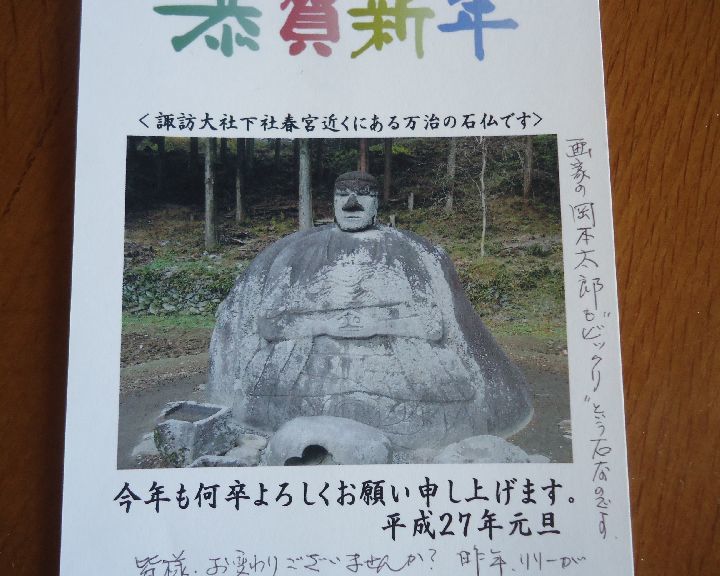 恭賀新年
<諏訪大社下社春宮近くにある万治の石仏です>
画家の岡本太郎も"ビックリ"という石仏です.
今年も何卒よろしくお願い申し上げます。
平成27年元旦
皆様.お変わりございませんか? 昨年.リリーが